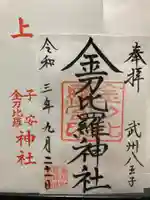 奉拝
武州八王子
金刀比羅神社
令和三年九月二十一日
上
子安
金刀比羅
神社